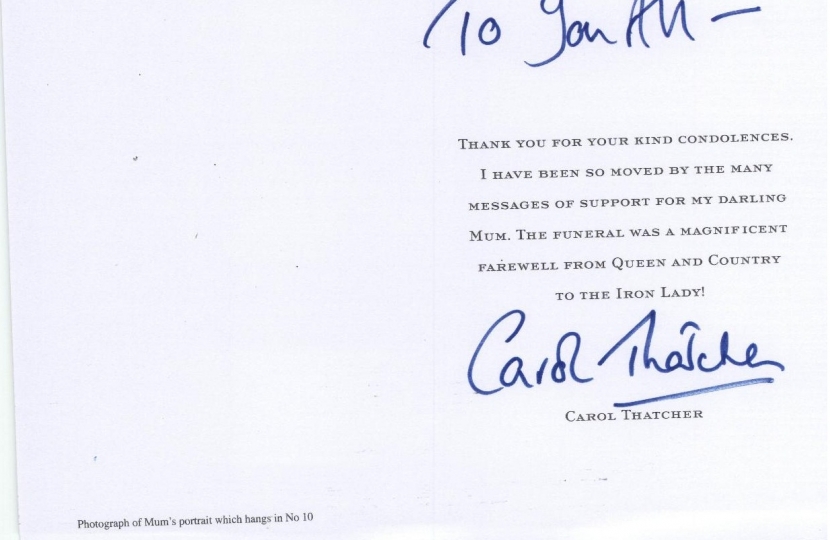 To You All —
THANK YOU FOR YOUR KIND CONDOLENCES.
I HAVE BEEN SO MOVED BY THE MANY
MESSAGES OF SUPPORT FOR MY DARLING
MUM. THE FUNERAL WAS A MAGNIFICENT
FAREWELL FROM QUEEN AND COUNTRY
TO THE IRON LADY!
Carol Thatcher
CAROL THATCHER
Photograph of Mum's portrait which hangs in No 10